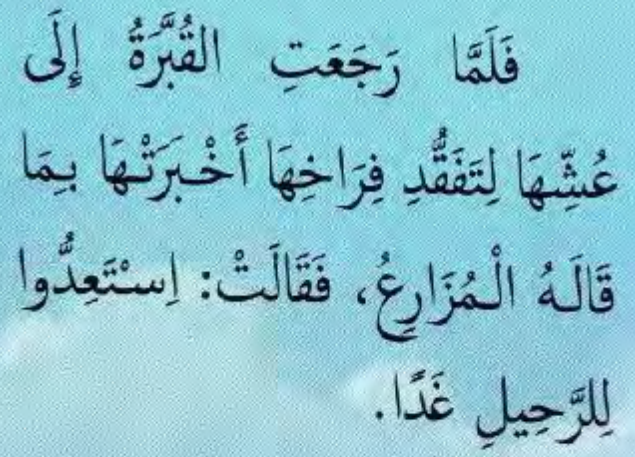 فَلَمَّا رَجَعَتِ القُبَّرَةُ إِلَى
عُشِّهَا لِتَفَقُّدِ فِرَاخِهَا أَخْبَرَتْهَا بِمَا
قَالَهُ الْمُزَارِعُ، فَقَالَتْ: اِسْتَعِدُّوا
لِلرَّحِيلِ غَدًا.